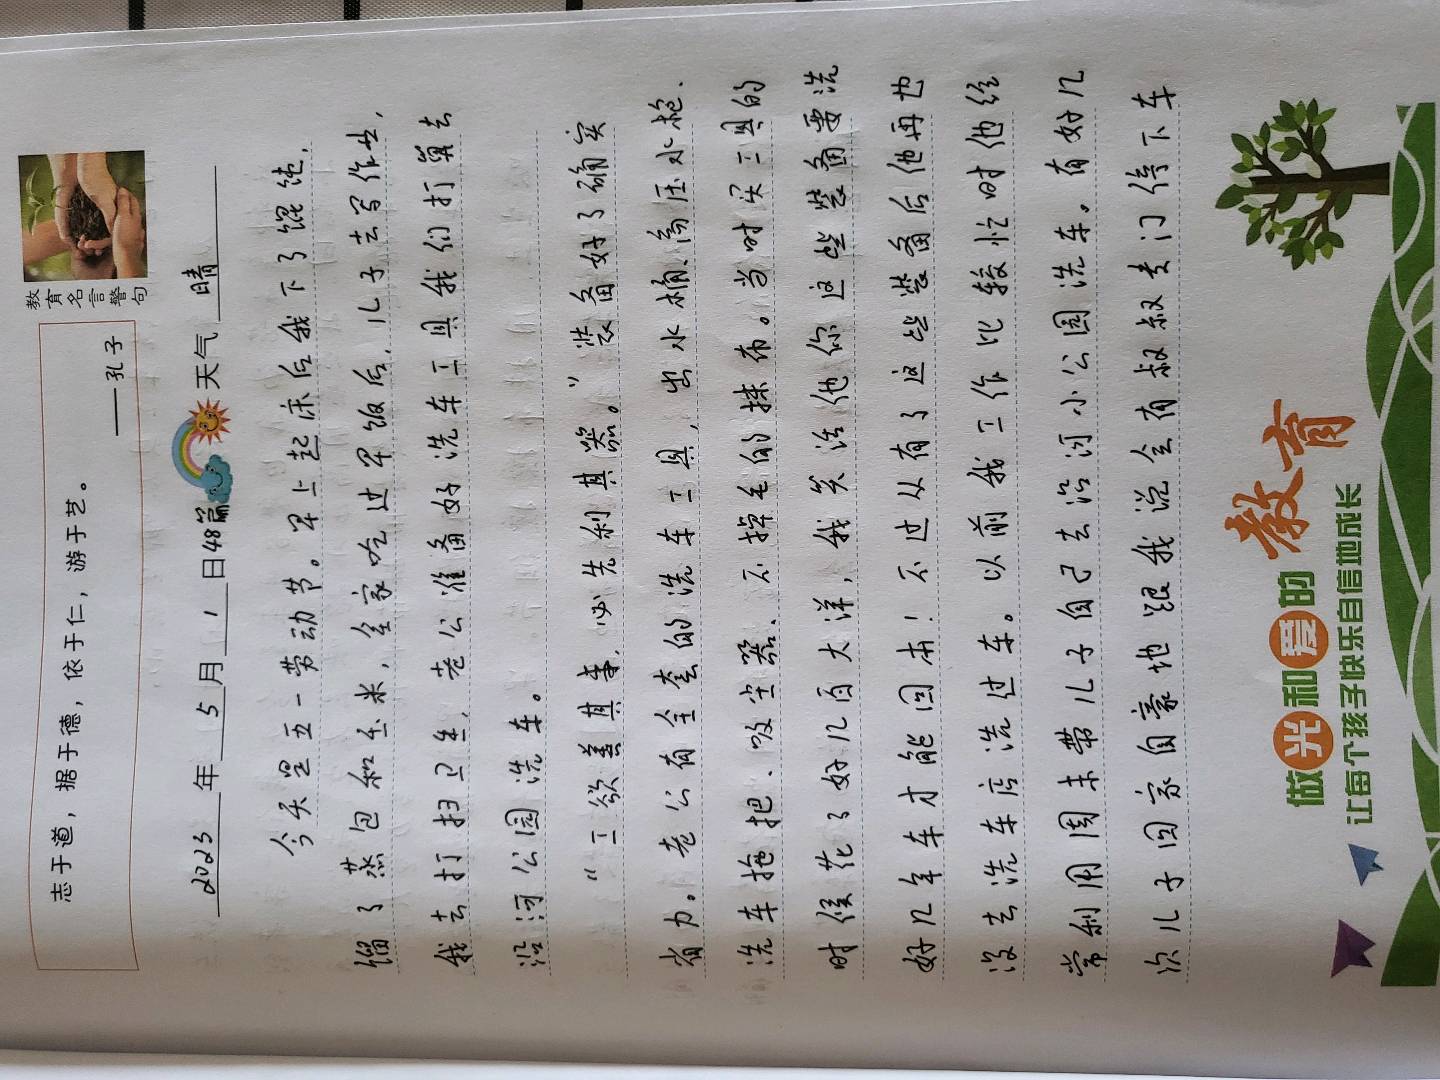 志于道，据于德，依于仁，游于艺。
——孔子
教育名言警句
2023年5月1日48篇 天气 晴
今天是五一劳动节。早上起床后我下了馄饨，
馏了蒸包和玉米，全家吃过早饭后，儿子去写作业，
我去打扫卫生，老公准备好洗车工具我们打算去
沿河公园洗车。
“工欲善其事，必先利其器。”装备好了确实
省力。老公有全套的洗车工具，出水桶、高压水枪、
洗车拖把、吸尘器、不掉毛的抹布。当时买工具的
时候花了好几百大洋，我笑话他你这些装备要洗
好几年车才能回本！不过从有了这些装备后他再也
没去洗车店洗过车。以前我工作比较忙时他经
常利用周末带儿子自己去沿河小公园洗车。有好几
次儿子回家自豪地跟我说会有叔叔专门停下车
做光和爱的教育
让每个孩子快乐自信地成长